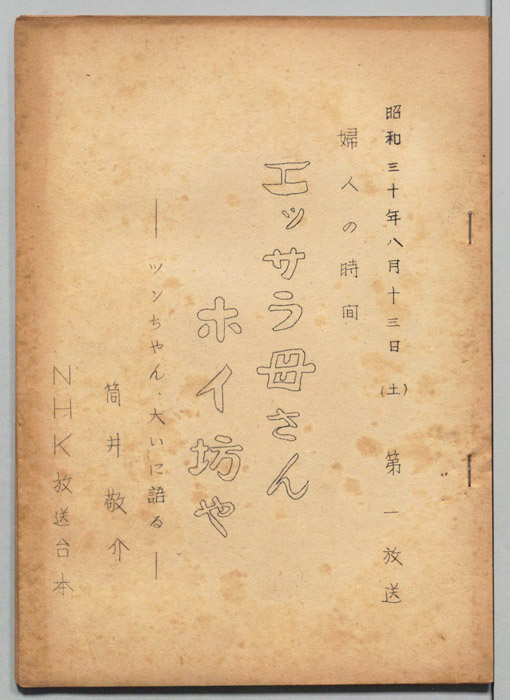 昭和三十年八月十三日(土) 第一放送
婦人の時間
エッサラ母さん
ホイ坊や
―ツンちゃん、大いに語る―
筒井敬介
NHK放送台本